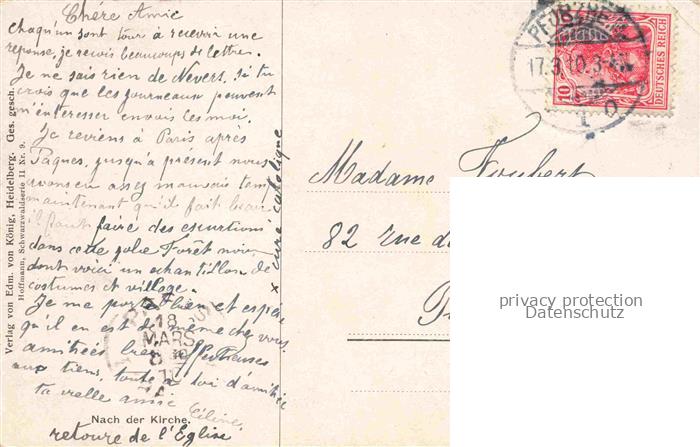 Chére Amie
chaqu'un sont tour à recevoir une
reponse, je reçois beaucoups de lettres.
Je ne sais rien de Nevers, si tu
crois que les journeaux peuvent
m'interesser envois les moi.
Je reviens à Paris après
Pâques, jusqu'a présent nous
avons eu assez mauvais temp
maintenant qu'il fait beau
il faut faire des escurtions
dans cette jolie Forêt noire
dont voici un echantillon de
costumes et village.
Je me porte bien et espère
qu'il en est de même chez vous
amitiées bien affectueuses
aux tiens, toute à toi d'amitié
ta vielle amie
Céline
Nach der Kirche.
retoure de l'Eglise
x cure catolique
Verlag von Edm. von König, Heidelberg. Ges. gesch.
Hoffmann, Schwarzwaldserie II Nr. 9.
PFORZHEIM
17.3.10.3-4N
DEUTSCHES REICH
10
Madame Foubert
82 rue de
18
MARS
privacy protection
Datenschutz